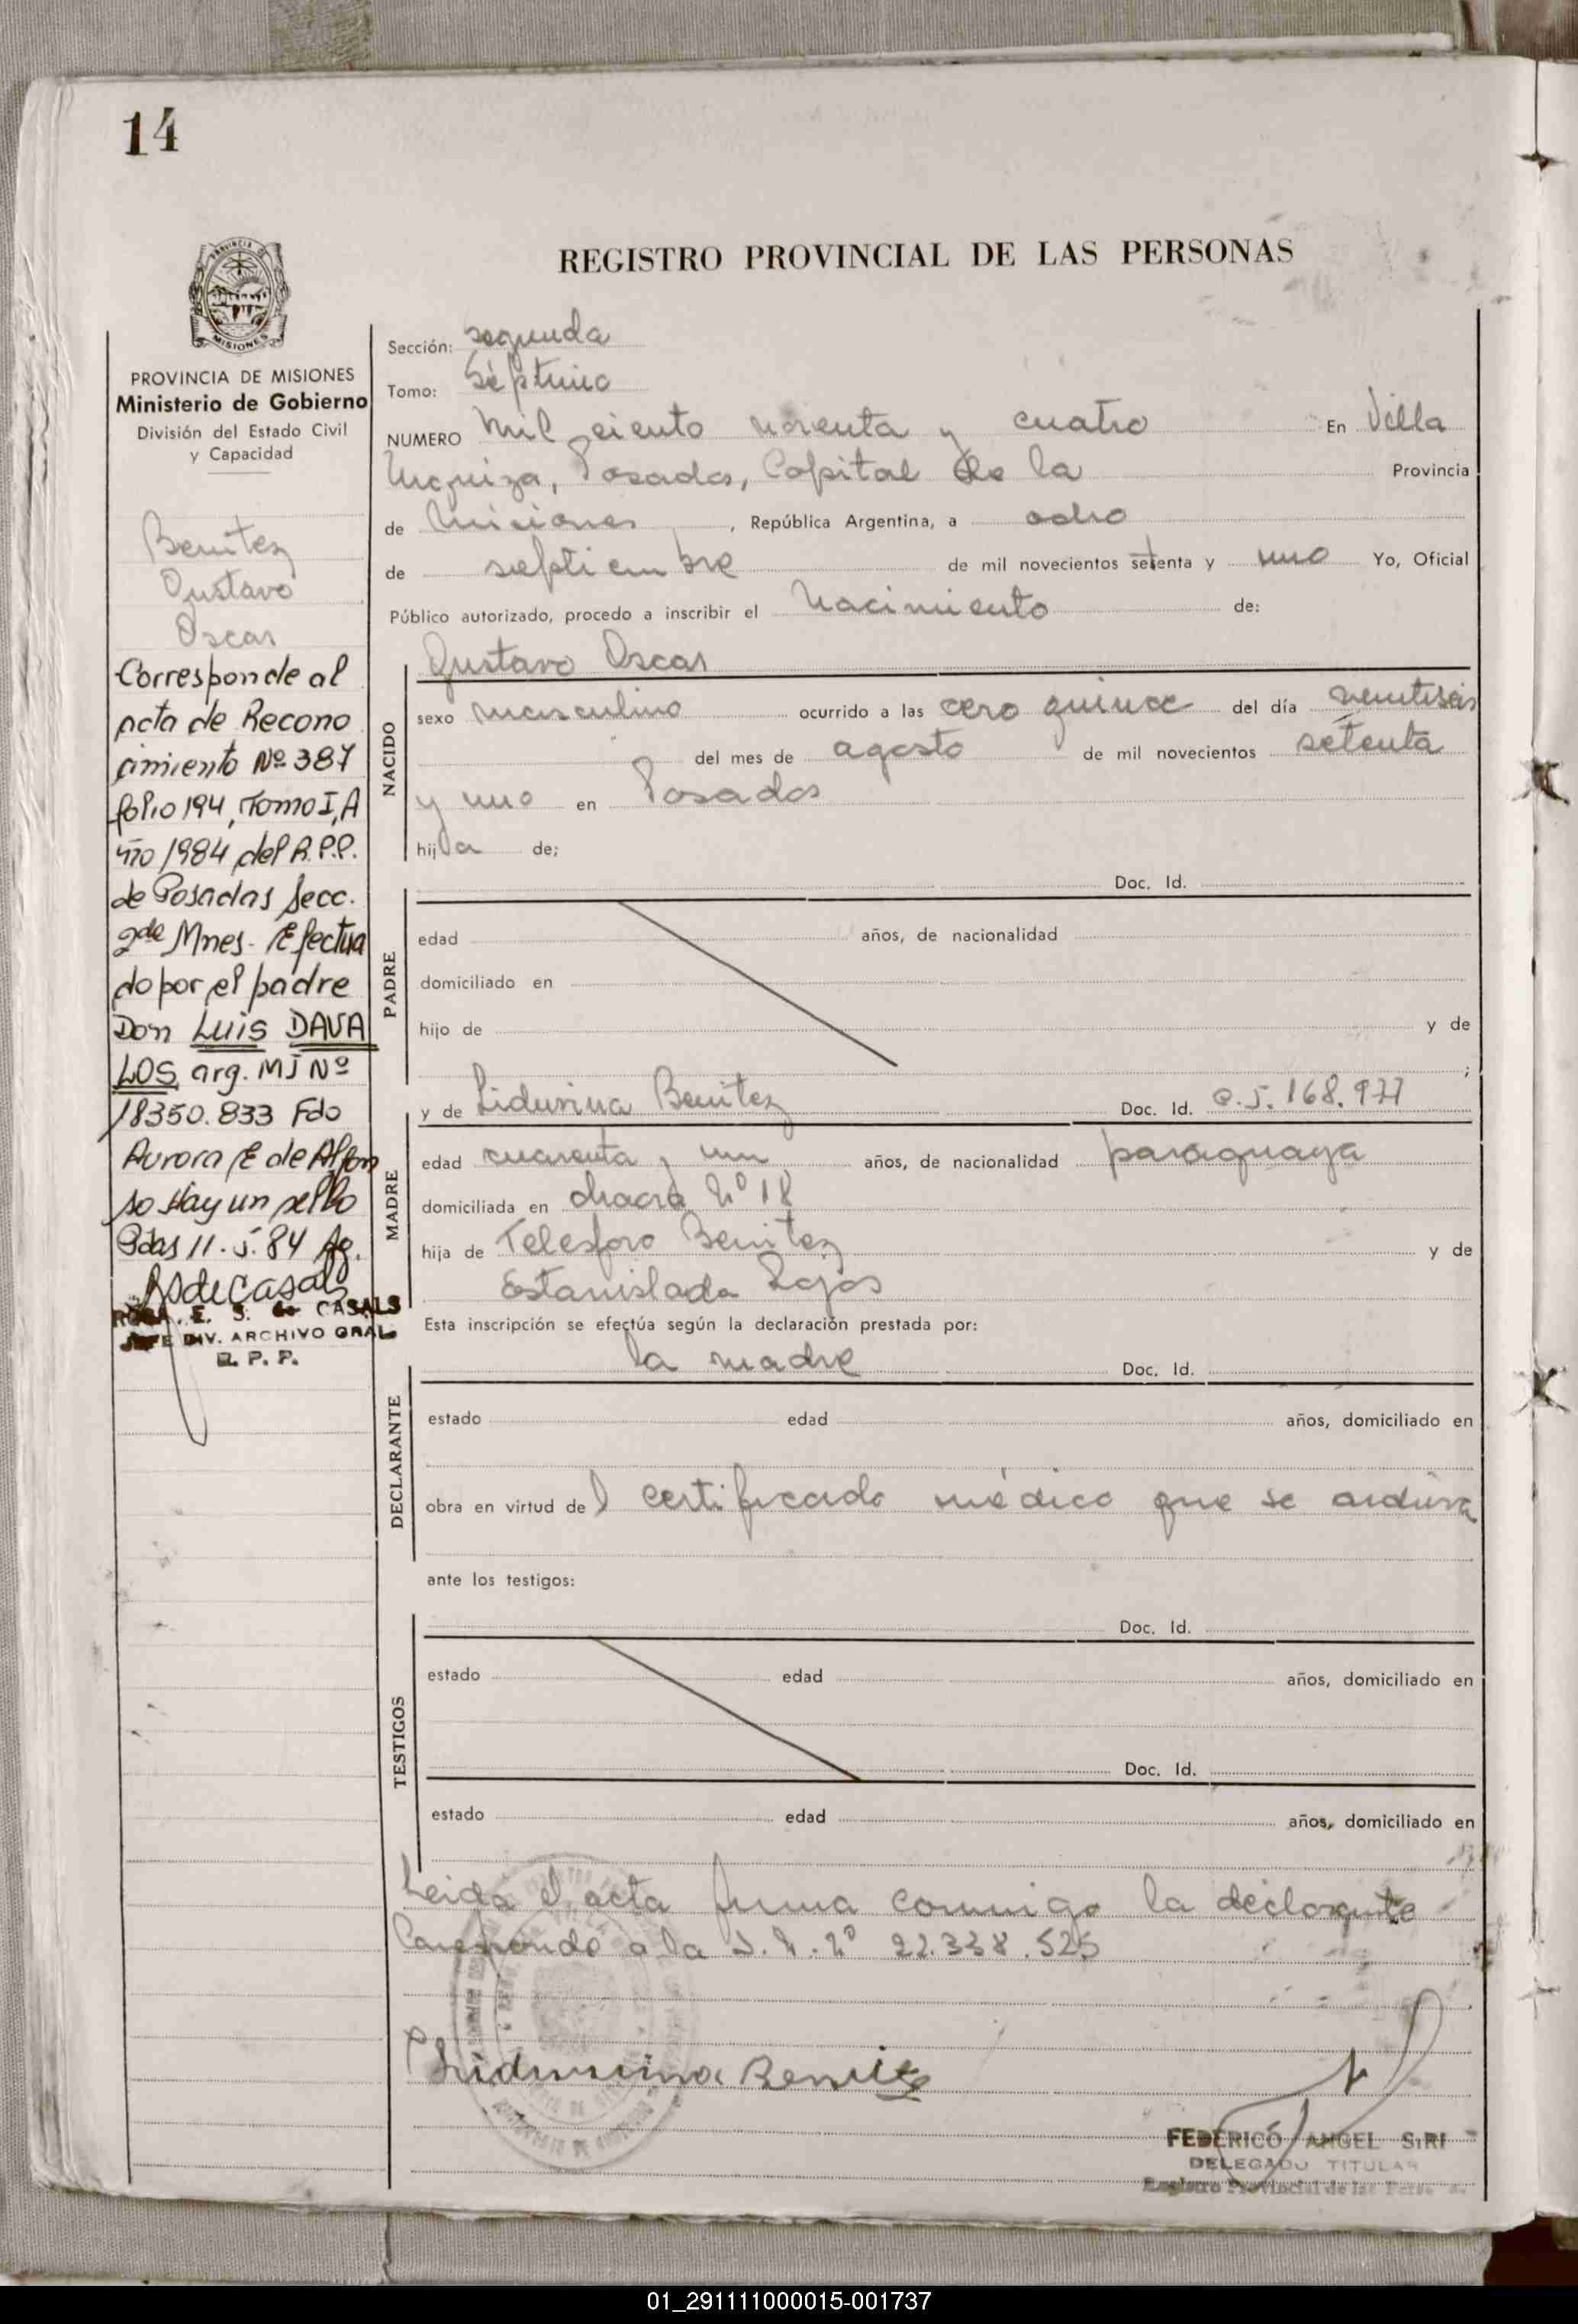 14
PROVINCIA DE MISIONES
Ministerio de Gobierno
División del Estado Civil
y Capacidad
Benitez
Gustavo
Oscar
Corresponde al
acta de Recono
cimiento Nº 387
folio 194, Tomo I, A
ño 1984 del R.P.P.
de Posadas Secc.
2da Mnes. Efectua
do por el padre
Don Luis DAVA
LOS, arg. MI Nº
18350.833 Fdo
Aurora E de Alfon
so Hay un sello
Pdas 11.5.84 Ag.
RSdeCasals
ROSA E. S. de CASALS
JEFE DIV. ARCHIVO GRAL
R. P. P.
REGISTRO PROVINCIAL DE LAS PERSONAS
Sección: segunda
Tomo: Séptimo
NUMERO mil ciento noventa y cuatro En Villa
Urquiza, Posadas, Capital de la Provincia
de Misiones, República Argentina, a ocho
de septiembre de mil novecientos setenta y uno Yo, Oficial
Público autorizado, procedo a inscribir el Nacimiento de:
Gustavo Oscar
NACIDO
sexo masculino ocurrido a las cero quince del día veintiseis
del mes de agosto de mil novecientos setenta
y uno en Posadas
hij de;
Doc. Id.
PADRE
edad años, de nacionalidad
domiciliado en
hijo de y de
;
y de Lidurina Benitez Doc. Id. C.I. 168.977
MADRE
edad cuarenta y un años, de nacionalidad paraguaya
domiciliada en chacra Nº 18
hija de Telesforo Benitez y de
Estanislada Rojas
Esta inscripción se efectúa según la declaración prestada por:
la madre Doc. Id.
DECLARANTE
estado edad años, domiciliado en
obra en virtud del certificado médico que se archiva
ante los testigos:
Doc. Id.
TESTIGOS
estado edad años, domiciliado en
Doc. Id.
estado edad años, domiciliado en
Leida el acta firma conmigo la declarante
Corresponde a la Nº 22.338.525
Lidurina Benitez
FEDERICO ANGEL SIRI
DELEGADO TITULAR
Registro Provincial de las
01_291111000015-001737